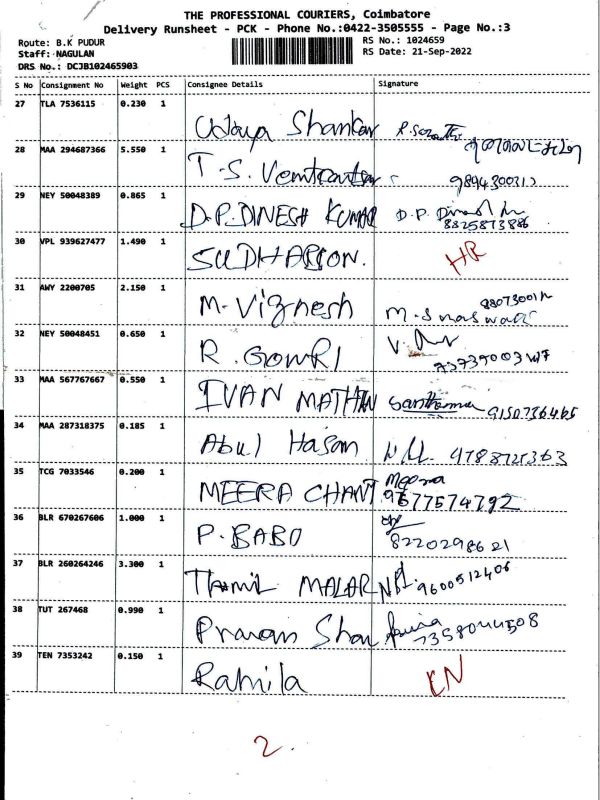 THE PROFESSIONAL COURIERS, Coimbatore
Delivery Runsheet - PCK - Phone No.:0422-3505555 - Page No.:3
Route: B.K PUDUR
RS No.: 1024659
Staff: NAGULAN
RS Date: 21-Sep-2022
DRS No.: DCJB102465903
S No Consignment No Weight PCS Consignee Details Signature
27 TLA 7536115 0.230 1 Udaya Shankar
28 MAA 294687366 5.550 1 T.S.
29 NEY 50048389 0.865 1 D.P.DINESH KUMAR D.P. 8825873886
30 VPL 939627477 1.490 1 SUDHARSON. HR
31 AWY 2200705 2.150 1 M. Vignesh
32 NEY 50048451 0.650 1 R. GOWRI
33 MAA 567767667 0.550 1 IVAN
34 MAA 287318375 0.185 1 Abul Hasan
35 TCG 7033546 0.200 1 MEERA CHANT Meera 9677574792
36 BLR 670267606 1.000 1 P. BABO 8220298621
37 BLR 260264246 3.300 1 THAMIL MALAR 9600512406
38 TUT 267468 0.990 1 7358044508
39 TEN 7353242 0.150 1 Ramila
2.